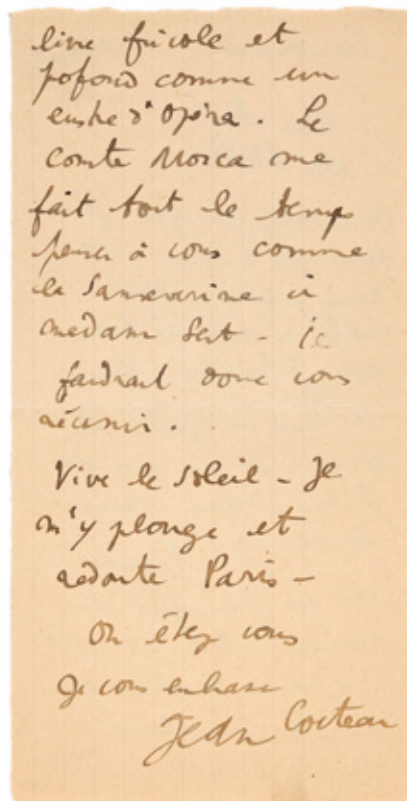 livre frivole et
profond comme un
lustre d'Opéra. Le
comte Mosca me
fait tout le temps
penser à vous comme
la Sanseverina à
madame Sert - il
faudrait donc vous
réunir.
Vive le soleil - Je
m'y plonge et
redoute Paris -
Où êtes vous
Je vous embrasse
Jean Cocteau